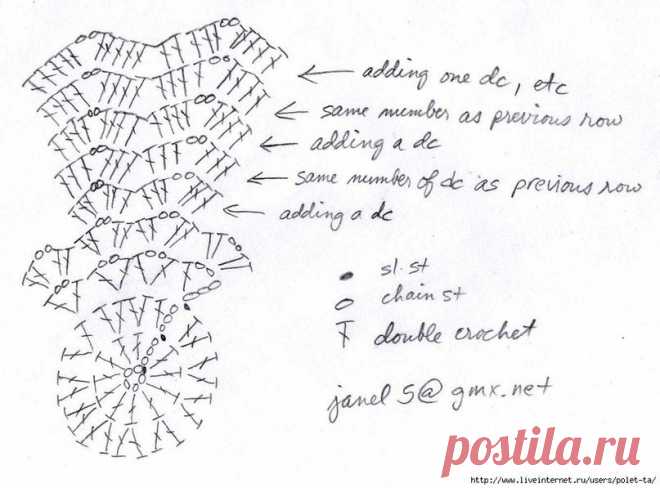 adding one dc, etc
same number as previous row
adding a dc
same number of dc as previous row
adding a dc
sl.st
chain st
double crochet
janel5@gmx.net
postila.ru
http://www.liveinternet.ru/users/polet-ta/